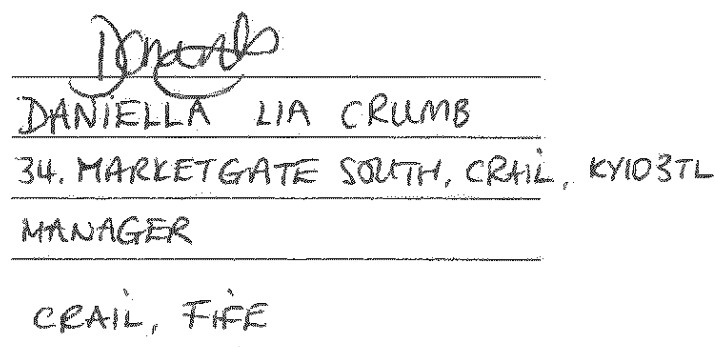 DANIELLA LIA CRUMB
34. MARKETGATE SOUTH, CRAIL, KY103TL
MANAGER
CRAIL, FIFE